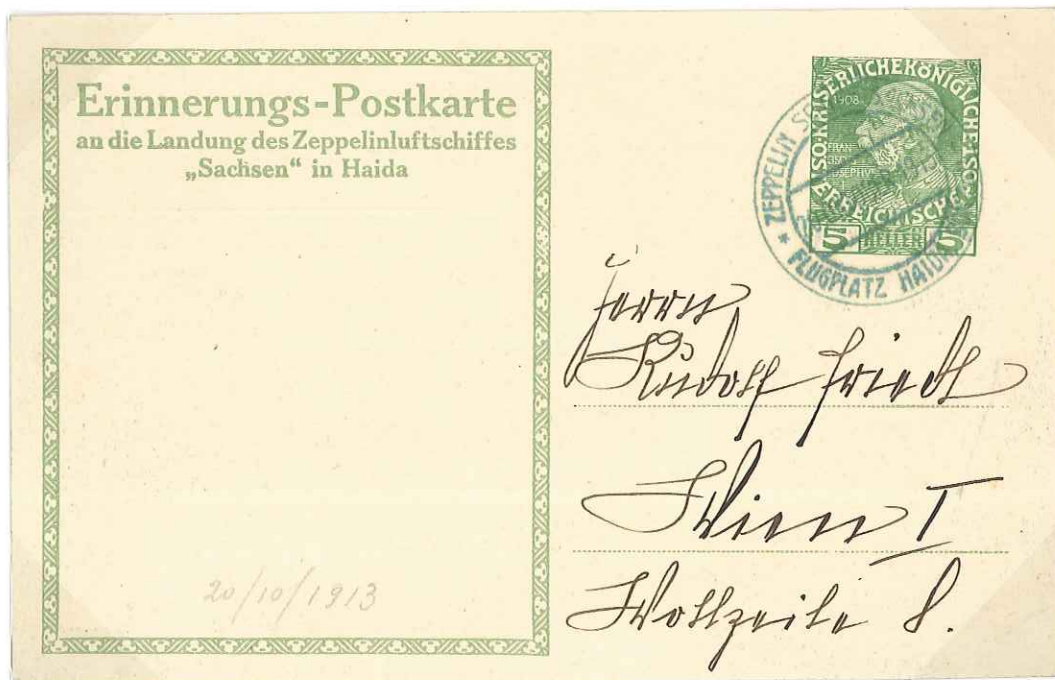 Erinnerungs-Postkarte
an die Landung des Zeppelinluftschiffes
„Sachsen“ in Haida
20/10/1913
KAISERLICHEKÖNIGLICHE
ÖSTERREICHISCHE
1908
5 HELLER 5
ZEPPELIN
* FLUGPLATZ HAIDA
Herrn
Rudolf Friedl
Wien I
Wollzeile 8.